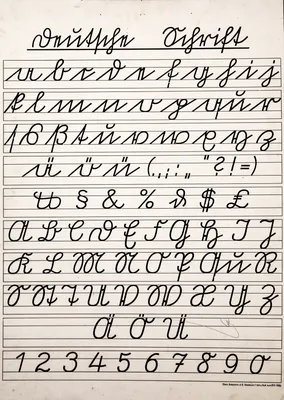 Deutsche Schrift
a b c d e f g h i j
k l m n o p qu r
ſ ß t u v w x y z
ä ö ü (.,;:„ "?!=)
§ & % $ £
A B C D E F G H I J
K L M N O P Qu R
S St T U V W X Y Z
Ä Ö Ü
1 2 3 4 5 6 7 8 9 0